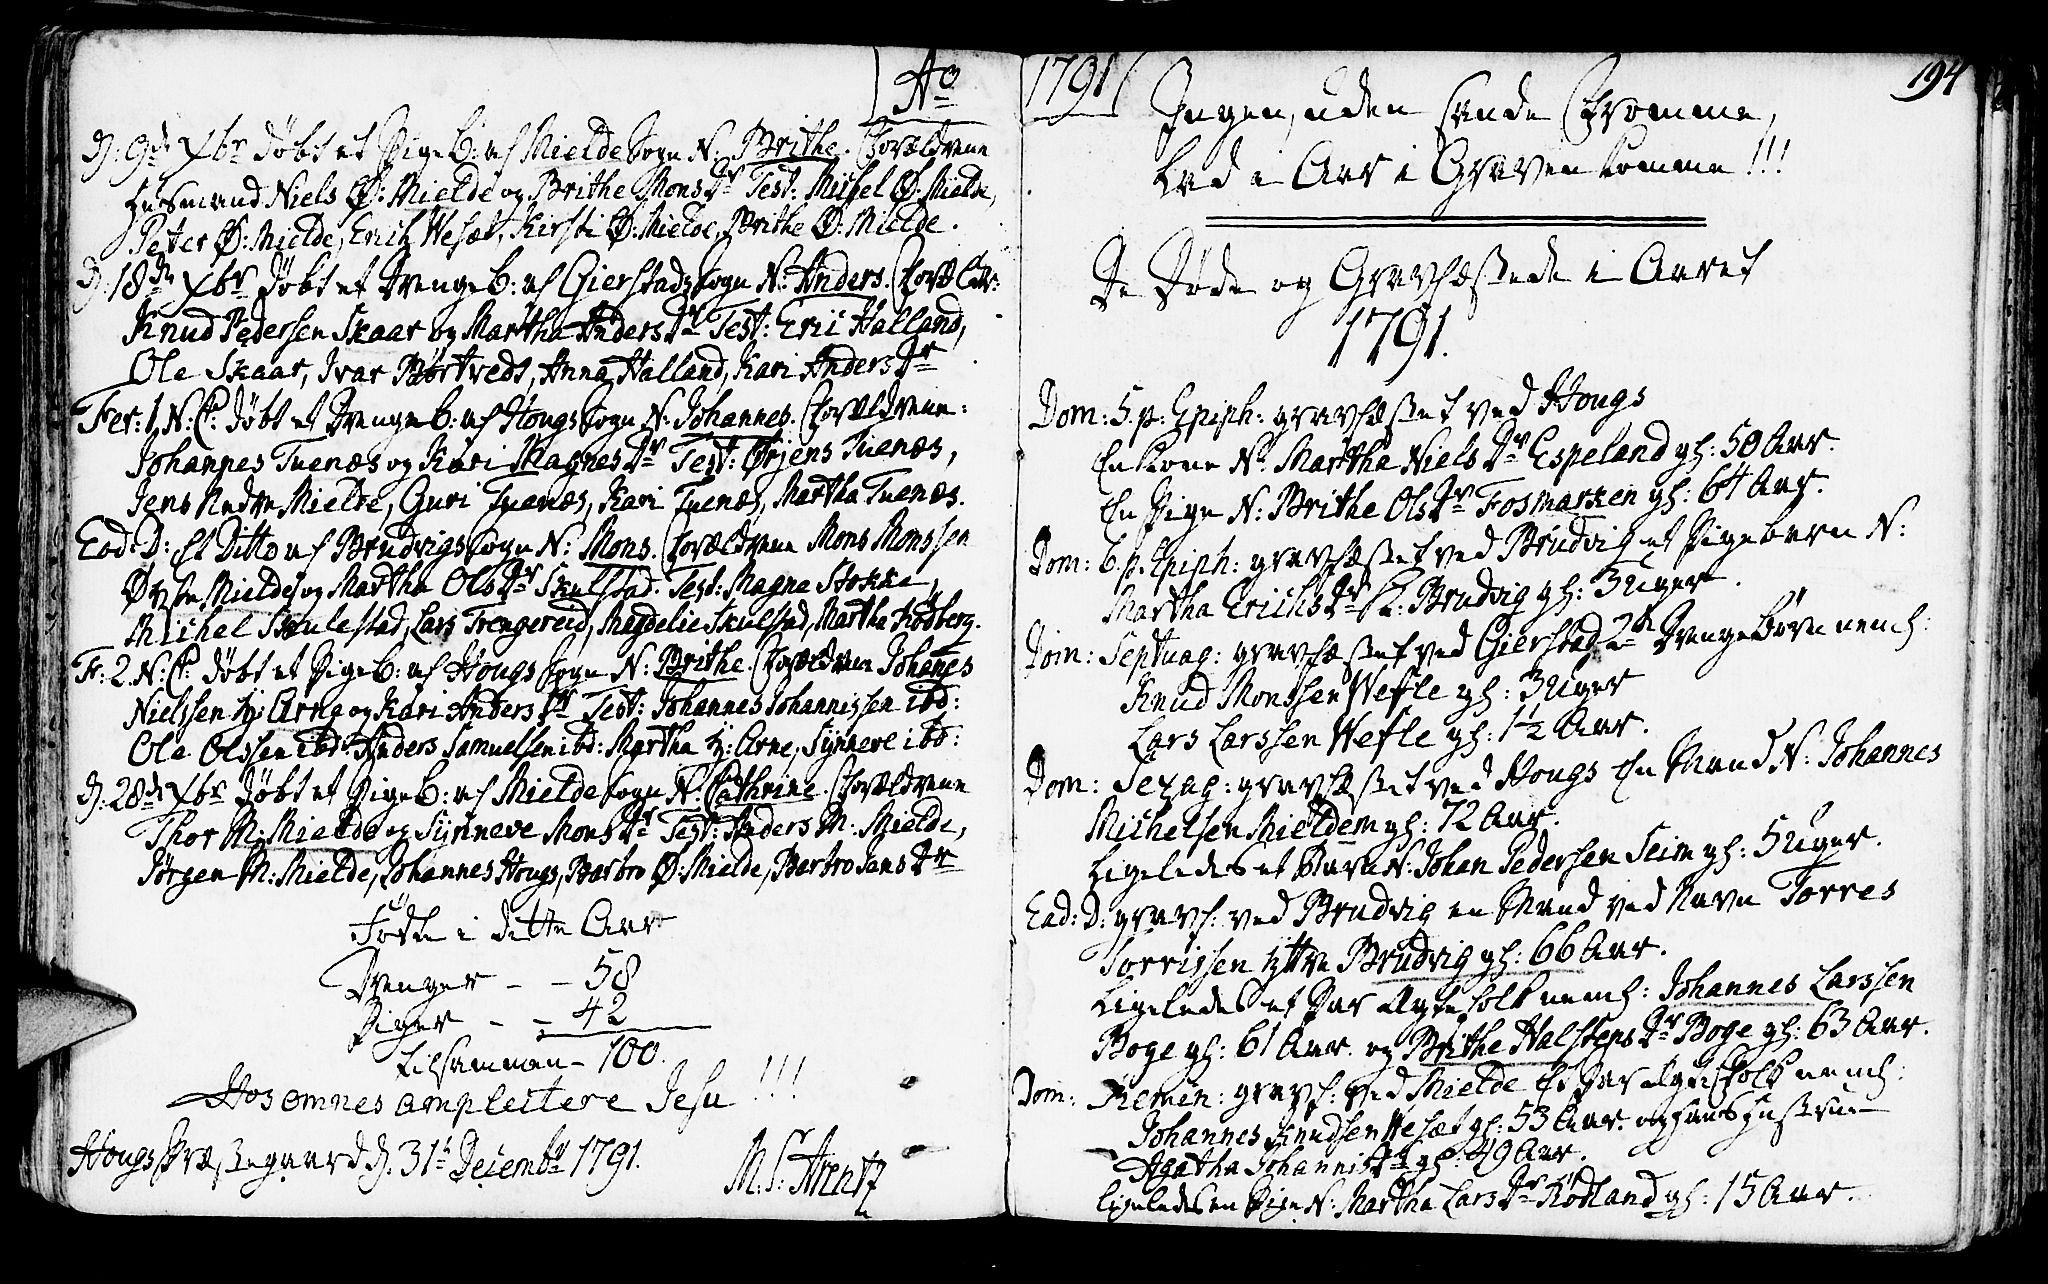 Ao
D: 9de Xbr døbt et Pige B: af Mielde Sogn N. Brithe. Forældrene
Husmand Niels Ø: Mielde og Brithe Mons Dr Test: Michel Ø: Mielde,
Peter Ø: Mielde, Erich Wesæt, Kirsti Ø: Mielde, Brithe Ø: Mielde.
D: 18de Xbr døbt et Drenge B: af Gierstads Sogn N: Anders. Forældr:
Knud Pedersen Skaar og Martha Anders Dr Test: Erii Halland,
Ole Skaar, Ivar Børtvedt, Anna Halland, Kari Anders Dr
Fer: 1. N: C: døbt et Drenge B: af Hougs Sogn N. Johannes. Forældrene:
Johannes Tuenæs og Kari Magnes Dr Test: Ørjens Tuenæs,
Jens Nedre Mielde, Guri Tuenæs, Kari Tuenæs, Martha Tuenæs.
Eod: D: Et Ditto af Brudvigs Sogn N: Mons. Forældrene Mons Monssen
Øvste Mielde og Martha Ols Dr Skulstad. Test: Magne Stokke,
Michel Skulestad, Lars Trengereid, Magdelie Skulstad, Martha Rødberg.
Fr: 2. N: C: døbt et Pige B: af Hougs Sogn N: Brithe. Forældrene Johanes
Nielssen Y: Arne og Kari Anders Dr Test: Johannes Johannissen ibd:
Ole Olssen ibd: Anders Samuelsen ibd: Martha Y: Arne, Synneve ibd:
D: 28de Xbr døbt et Pige B: af Mielde Sogn N. Cathrine. Forældrene
Thor M: Mielde og Synneve Mons Dr Test: Anders M: Mielde,
Jørgen M: Mielde, Johannes Hougs, Barbro Ø: Mielde, Barbro Jans Dr
Fødte i dette Aar
Drenger - - 58
Piger - - 42
tilsammen - 100.
Hos omnes ampleitere Jesu !!!
Hougs Præstegaard d. 31te Decembr 1791. M. S: Arentz
1791
194
Ingen, uden sande Fromme,
Lad i Aar i Graven komme!!!
De Døde og Gravfæstede i Aaret
1791.
Dom: 5. p: Epiph: gravfæstet ved Hougs
En Kone N. Martha Niels Dr Espeland gl: 50 Aar.
En Pige N: Brithe Ols Dr Fosmarken gl: 64 Aar.
Dom: 6. p. Epiph: gravfæstet ved Brudvig et Pigebarn N:
Martha Erichs Dr Brudvig gl: 3 Uger.
Dom: Septuag: gravfæstet ved Gierstad 2de Drengebørn neml:
Knud Monssen Wefle gl: 3 Uger
Lars Larssen Wefle gl: 1½ Aar.
Dom: Sexag: gravfæstet ved Hougs En Mand N: Johannes
Michelsen Mieldem gl: 72 Aar.
Ligeledes et Barn N: Johan Pedersen Seim gl: 5 Uger.
Ead: D: gravf: ved Brudvig en Mand ved Navn Torres
Torrissen Yttre Brudvig gl: 66 Aar.
Ligeledes et Par Ægtefolk neml: Johannes Larssen
Boge gl: 61 Aar. og Brithe Halstens Dr Boge gl: 63 Aar.
Dom: Remin: gravf: ved Mielde Et Par Ægte Folk neml:
Johannes Knudsen Wesæt gl: 53 Aar. og hans Hustrue
Agatha Johannis Dr gl: 49 Aar.
Ligeledes en Pige N: Martha Lars Dr Rødland gl: 15 Aar.